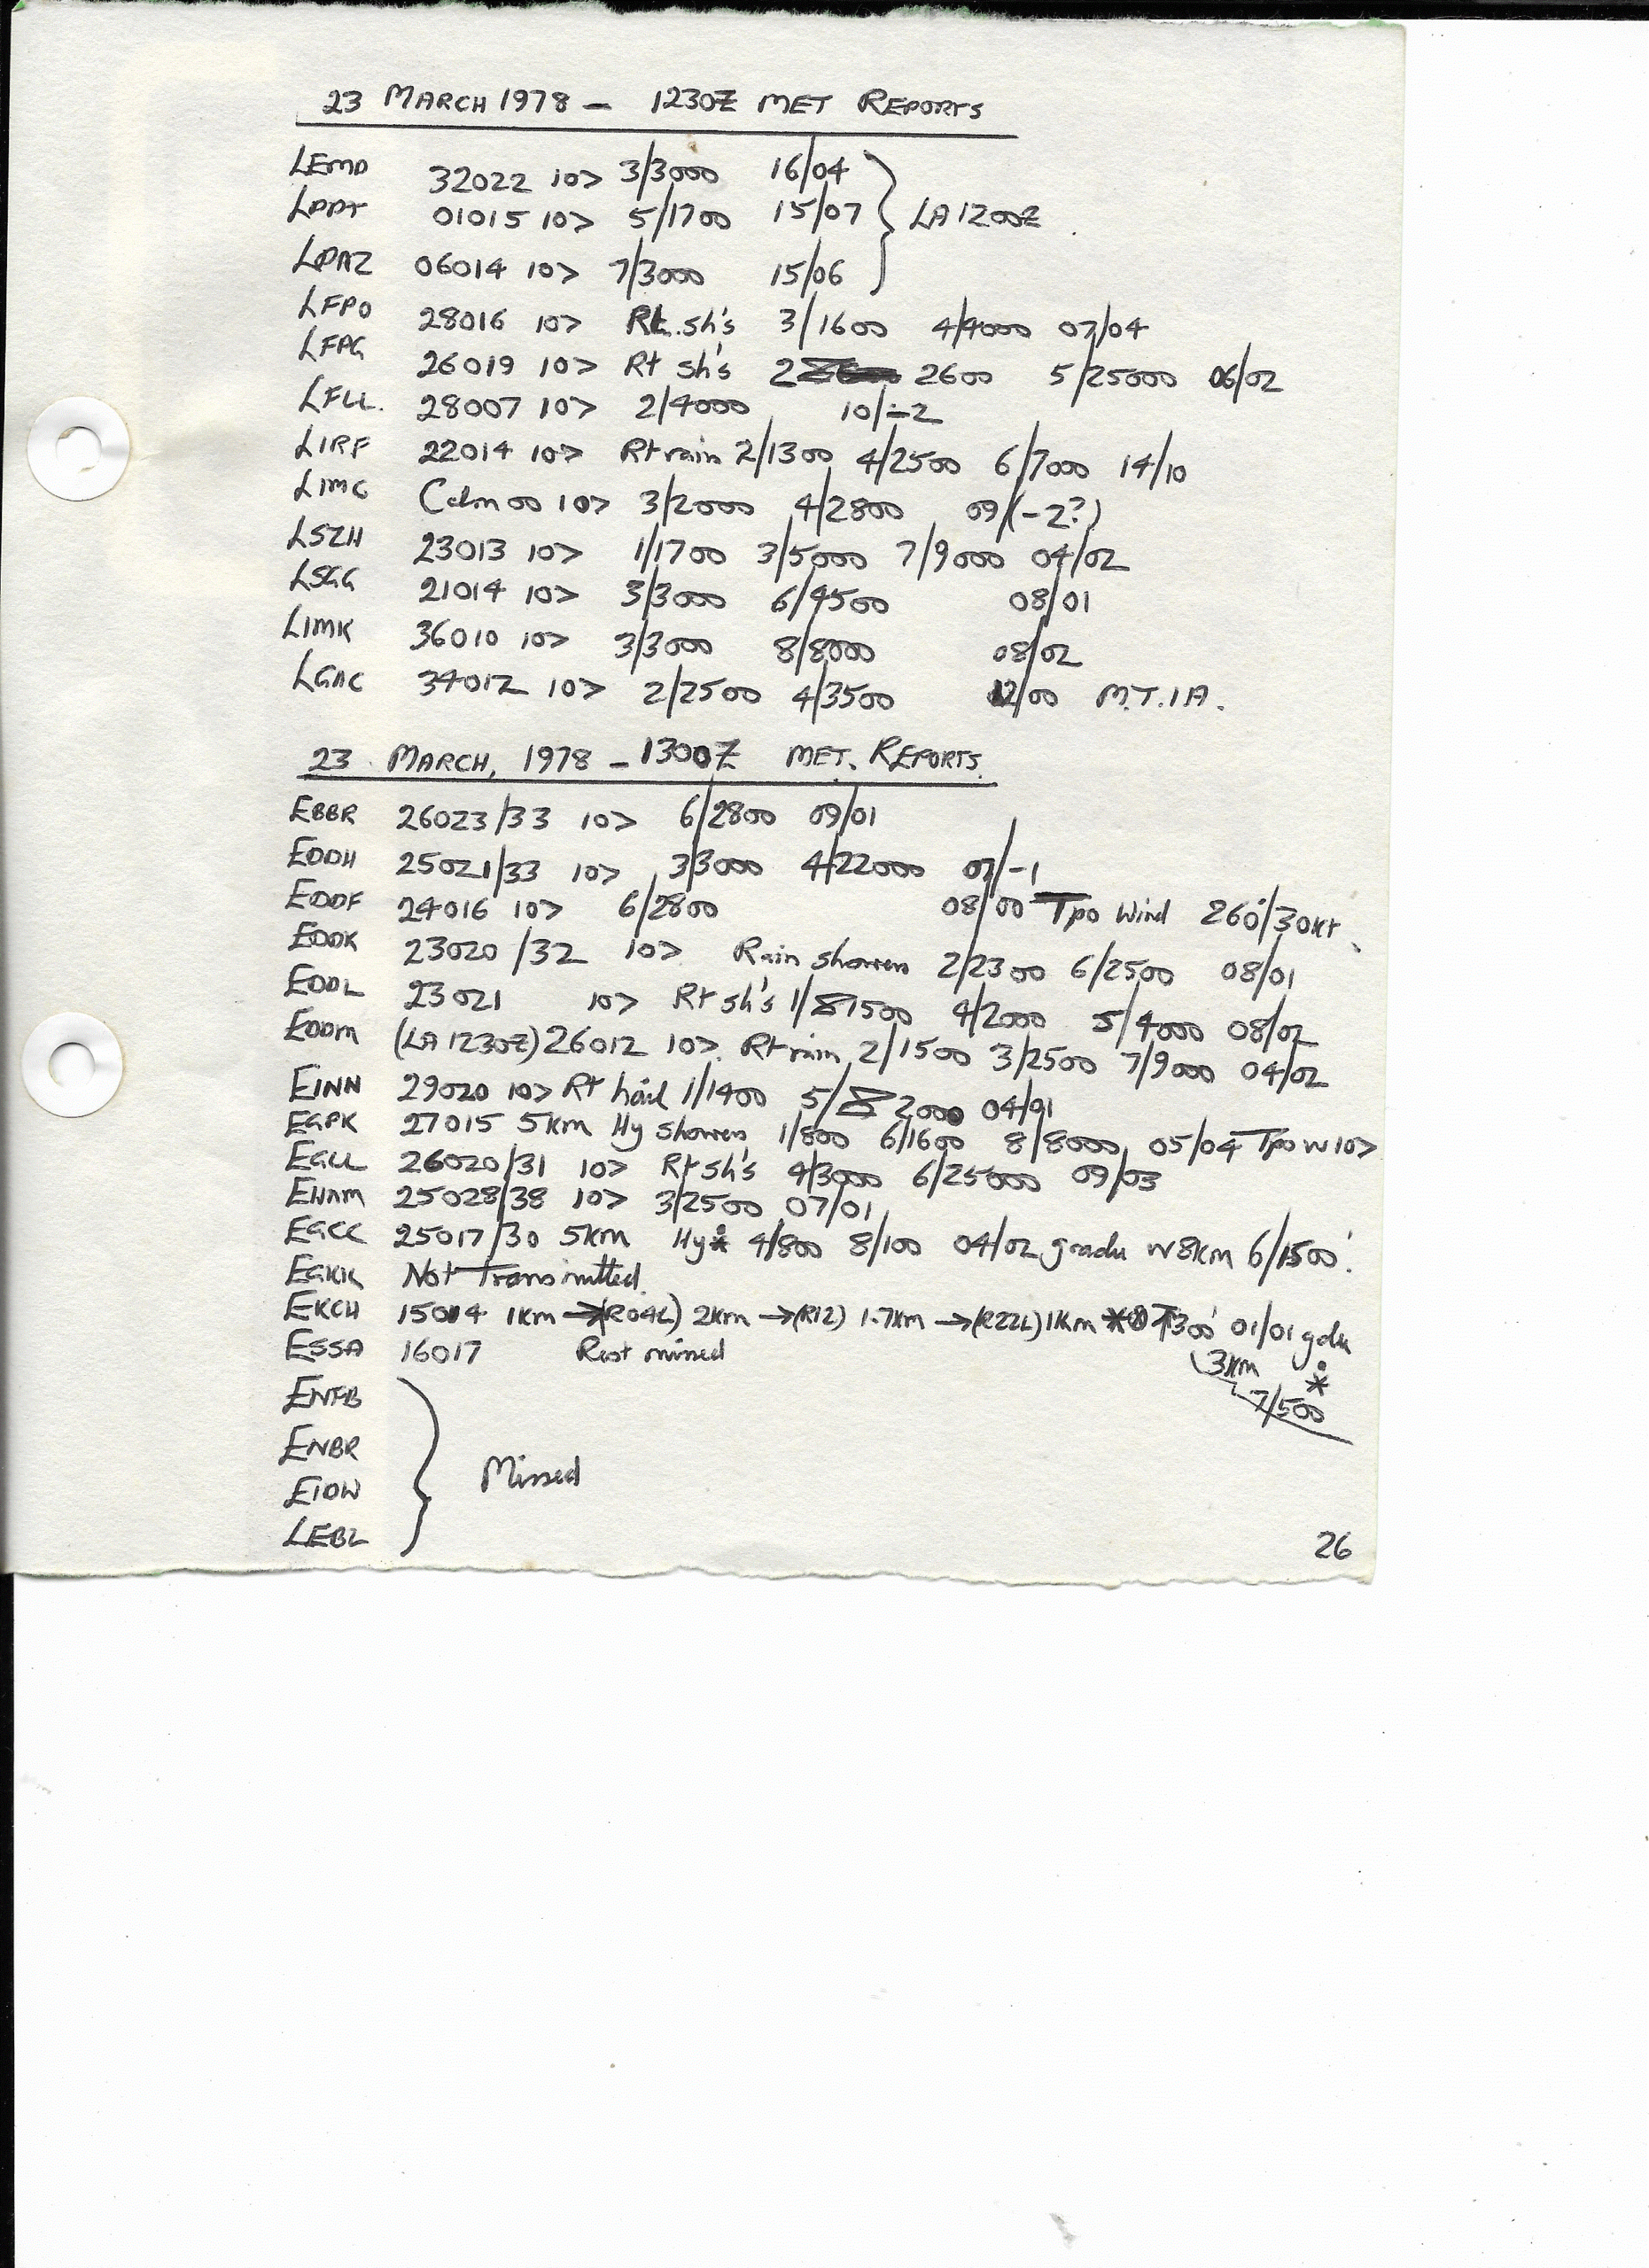 23 MARCH 1978 - 1230Z MET REPORTS
LEMD 32022 10> 3/3000 16/04
LPPT 01015 10> 5/1700 15/07 } LA 1200Z
LPAZ 06014 10> 7/3000 15/06
LFPO 28016 10> Rt. sh's 3/1600 4/4000 07/04
LFPG 26019 10> Rt sh's 2 2600 5/25000 06/02
LFLL. 28007 10> 2/4000 10/-2
LIRF 22014 10> Rt rain 2/1300 4/2500 6/7000 14/10
LIMC Calm 00 10> 3/2000 4/2800 09/(-2?)
LSZH 23013 10> 1/1700 3/5000 7/9000 04/02
LSGG 21014 10> 3/3000 6/4500 08/01
LIMK 36010 10> 3/3000 8/8000 08/02
LGAC 34012 10> 2/2500 4/3500 12/00 M.T.I A.
23 MARCH, 1978 - 1300Z MET. REPORTS.
EBBR 26023/33 10> 6/2800 09/01
EDDH 25021/33 10> 3/3000 4/22000 07/-1
EDDF 24016 10> 6/2800 08/00 Tpo Wind 260°/30kt
EDDK 23020/32 10> Rain showers 2/2300 6/2500 08/01
EDDL 23021 10> Rt sh's 1/1500 4/2000 5/4000 08/02
EDDM (LA 1230Z) 26012 10> Rt rain 2/1500 3/2500 7/9000 04/02
EINN 29020 10> Rt hail 1/1400 5/2000 04/01
EGPK 27015 5km Hy showers 1/800 6/1600 8/8000 05/04 Tpo W 10>
EGLL 26020/31 10> Rt sh's 4/3000 6/25000 09/03
EHAM 25028/38 10> 3/2500 07/01
EGCC 25017/30 5km Hy 4/800 8/100 04/02 gradu W 8km 6/1500'.
EGKK Not Transmitted.
EKCH 15014 1km →(R04L) 2km →(R12) 1.7km →(R22L) 1km * 300' 01/01 gdu
3km *
7/500
ESSA 16017 Rest missed
ENFB
ENBR
EIDW } Missed
LEBL
26